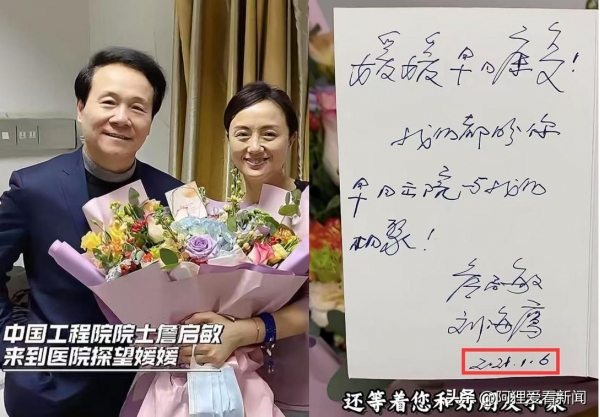 中国工程院院士詹启敏
来到医院探望媛媛
媛媛早日康复!
我们都盼你
早日出院与我们
相聚!
詹启敏
刘海鹰
2021.1.6
头条 @阿狸爱看新闻
还等着您和好朋友